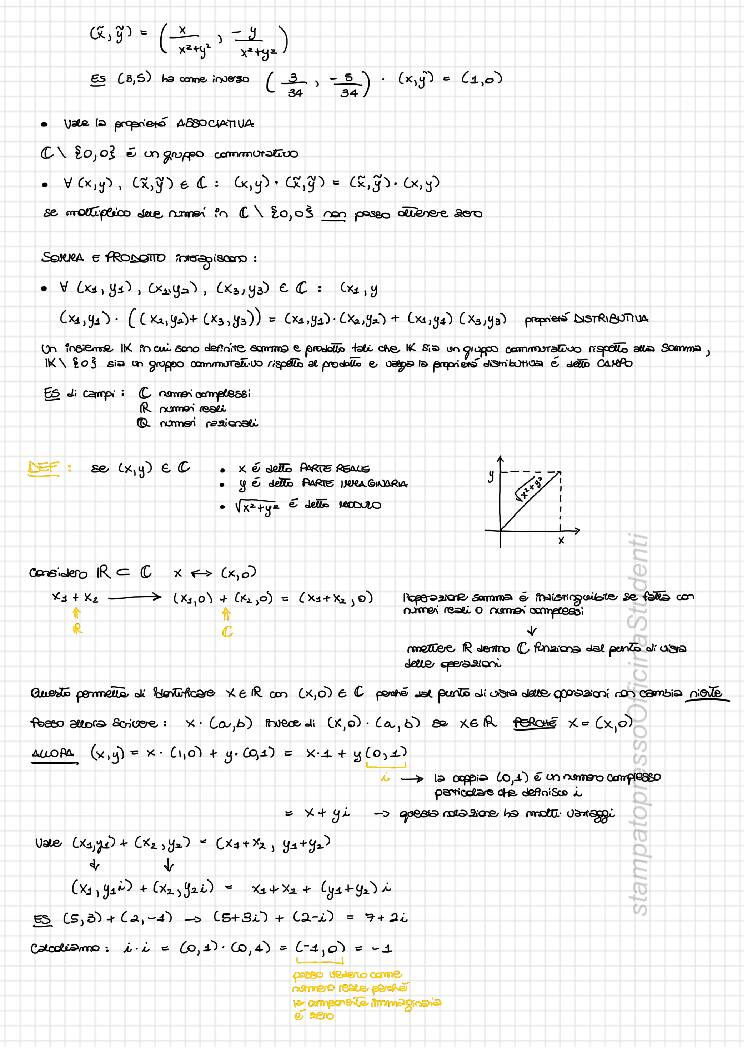 (x̃, ỹ) = ( x / (x²+y²) , -y / (x²+y²) )
ES (3,5) ha come inverso ( 3/34 , -5/34 ) · (x,y) = (1,0)
• Vale la proprietà ASSOCIATIVA
ℂ \ {0,0} è un gruppo commutativo
• ∀ (x,y), (x̃,ỹ) ∈ ℂ : (x,y) · (x̃,ỹ) = (x̃,ỹ) · (x,y)
se moltiplico due numeri in ℂ \ {0,0} non posso ottenere zero
SOMMA E PRODOTTO interagiscono :
• ∀ (x1,y1), (x2,y2), (x3,y3) ∈ ℂ : (x1,y
(x1,y1) · ((x2,y2) + (x3,y3)) = (x1,y1)·(x2,y2) + (x1,y1) (x3,y3) proprietà DISTRIBUTIVA
Un insieme IK in cui sono definite somma e prodotto tali che IK sia un gruppo commutativo rispetto alla somma,
IK \ {0} sia un gruppo commutativo rispetto al prodotto e valga la proprietà distributiva è detto CAMPO
ES di campi : ℂ numeri complessi
ℝ numeri reali
ℚ numeri razionali
DEF : se (x,y) ∈ ℂ • x è detto PARTE REALE
• y è detto PARTE IMMAGINARIA
• √x²+y² è detto MODULO
y
√x²+y²
x
Considero ℝ ⊂ ℂ x ↔ (x,0)
x1 + x2 → (x1,0) + (x2,0) = (x1+x2,0)
ℝ ℂ
l'operazione somma è indistinguibile se fatta con
numeri reali o numeri complessi
↓
mettere ℝ dentro ℂ funziona dal punto di vista
delle operazioni
Questo permette di identificare x ∈ ℝ con (x,0) ∈ ℂ perché dal punto di vista delle operazioni non cambia niente
Posso allora scrivere : x · (a,b) invece di (x,0) · (a,b) se x ∈ ℝ PERCHÉ x = (x,0)
ALLORA (x,y) = x · (1,0) + y · (0,1) = x·1 + y(0,1)
i → la coppia (0,1) è un numero complesso
particolare che definisco i
= x + yi → questa notazione ha molti vantaggi
Vale (x1,y1) + (x2,y2) = (x1+x2, y1+y2)
↓ ↓
(x1,y1i) + (x2,y2i) = x1+x2 + (y1+y2)i
ES (5,3) + (2,-1) → (5+3i) + (2-i) = 7+2i
Calcoliamo : i·i = (0,1)·(0,1) = (-1,0) = -1
posso vederlo come
numero reale perché
la componente immaginaria
è zero
stampatopressoOfficinaStudenti